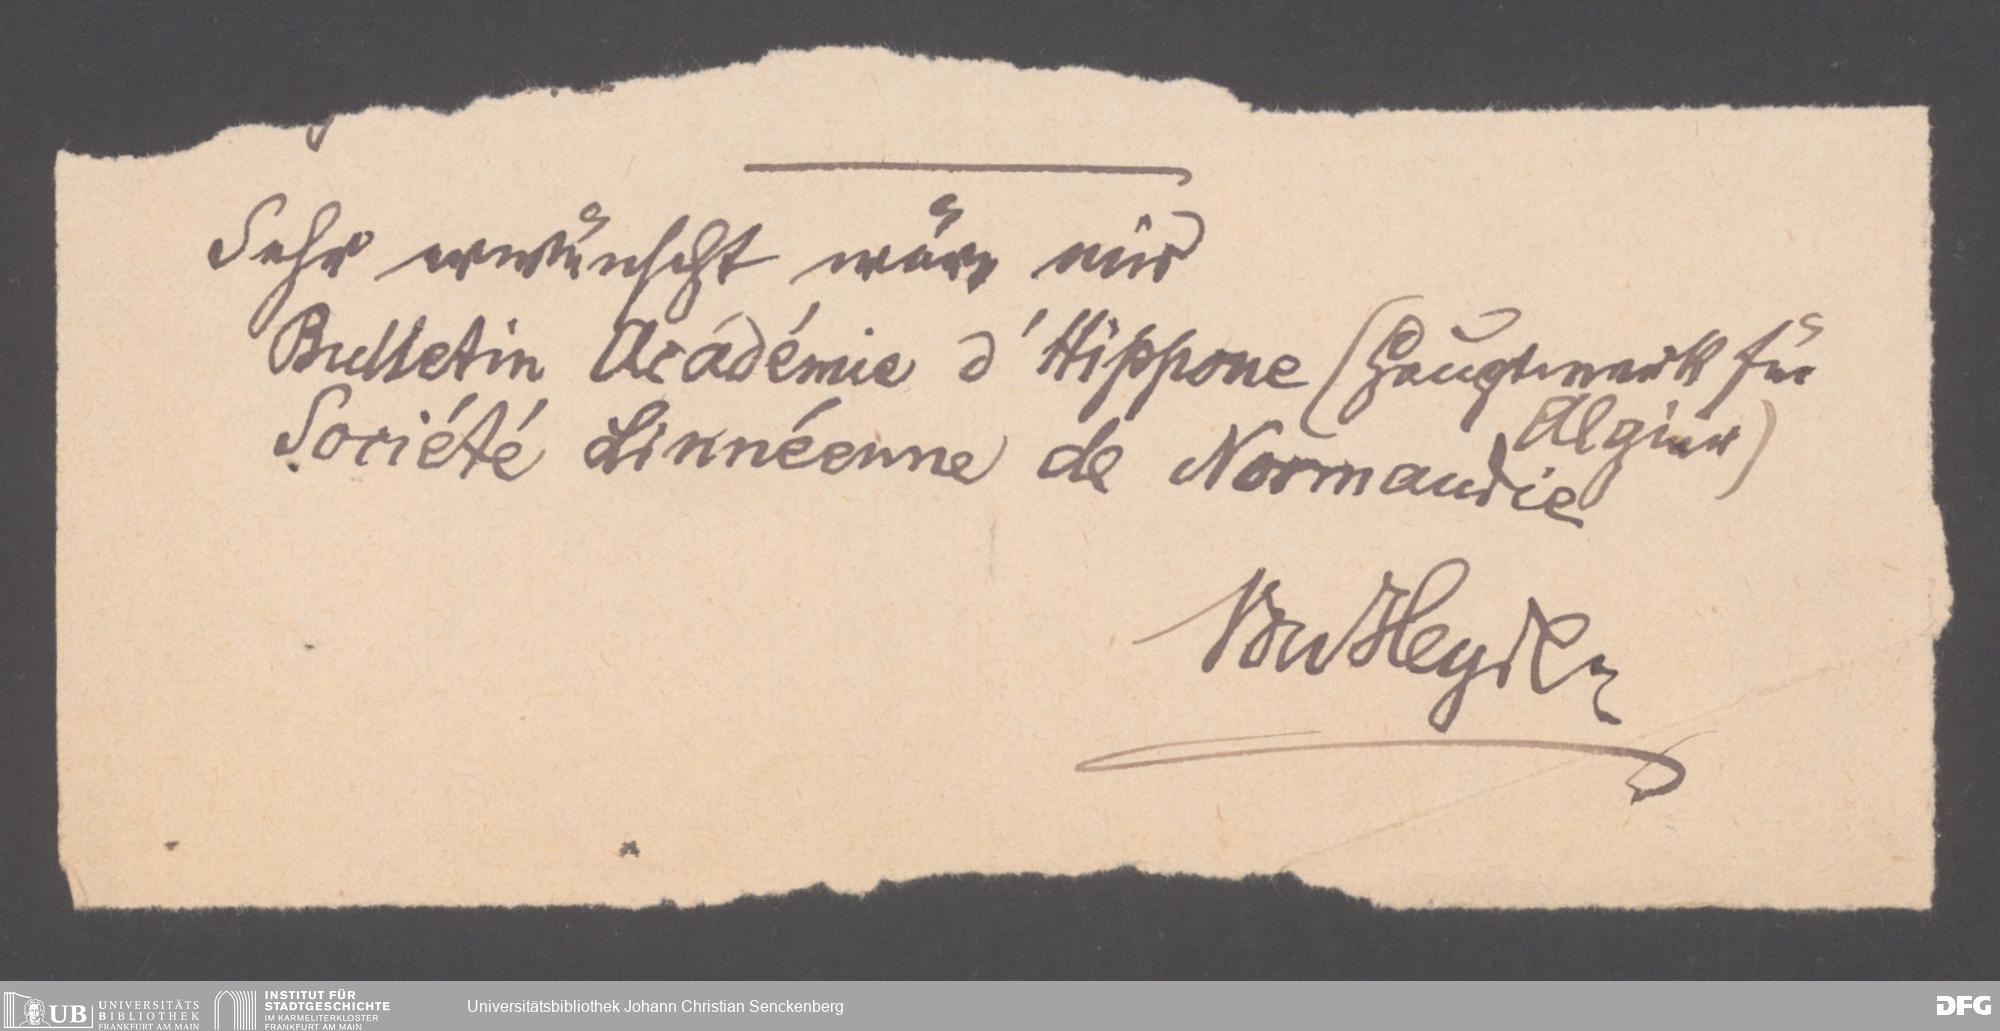 Sehr erwünscht wäre mir
Bulletin Académie d'Hippone (Hauptwerk für
Algier)
Société Linnéenne de Normandie
Von Heyden
UB UNIVERSITÄTS
BIBLIOTHEK
FRANKFURT AM MAIN
INSTITUT FÜR
STADTGESCHICHTE
IM KARMELITERKLOSTER
FRANKFURT AM MAIN
Universitätsbibliothek Johann Christian Senckenberg
DFG